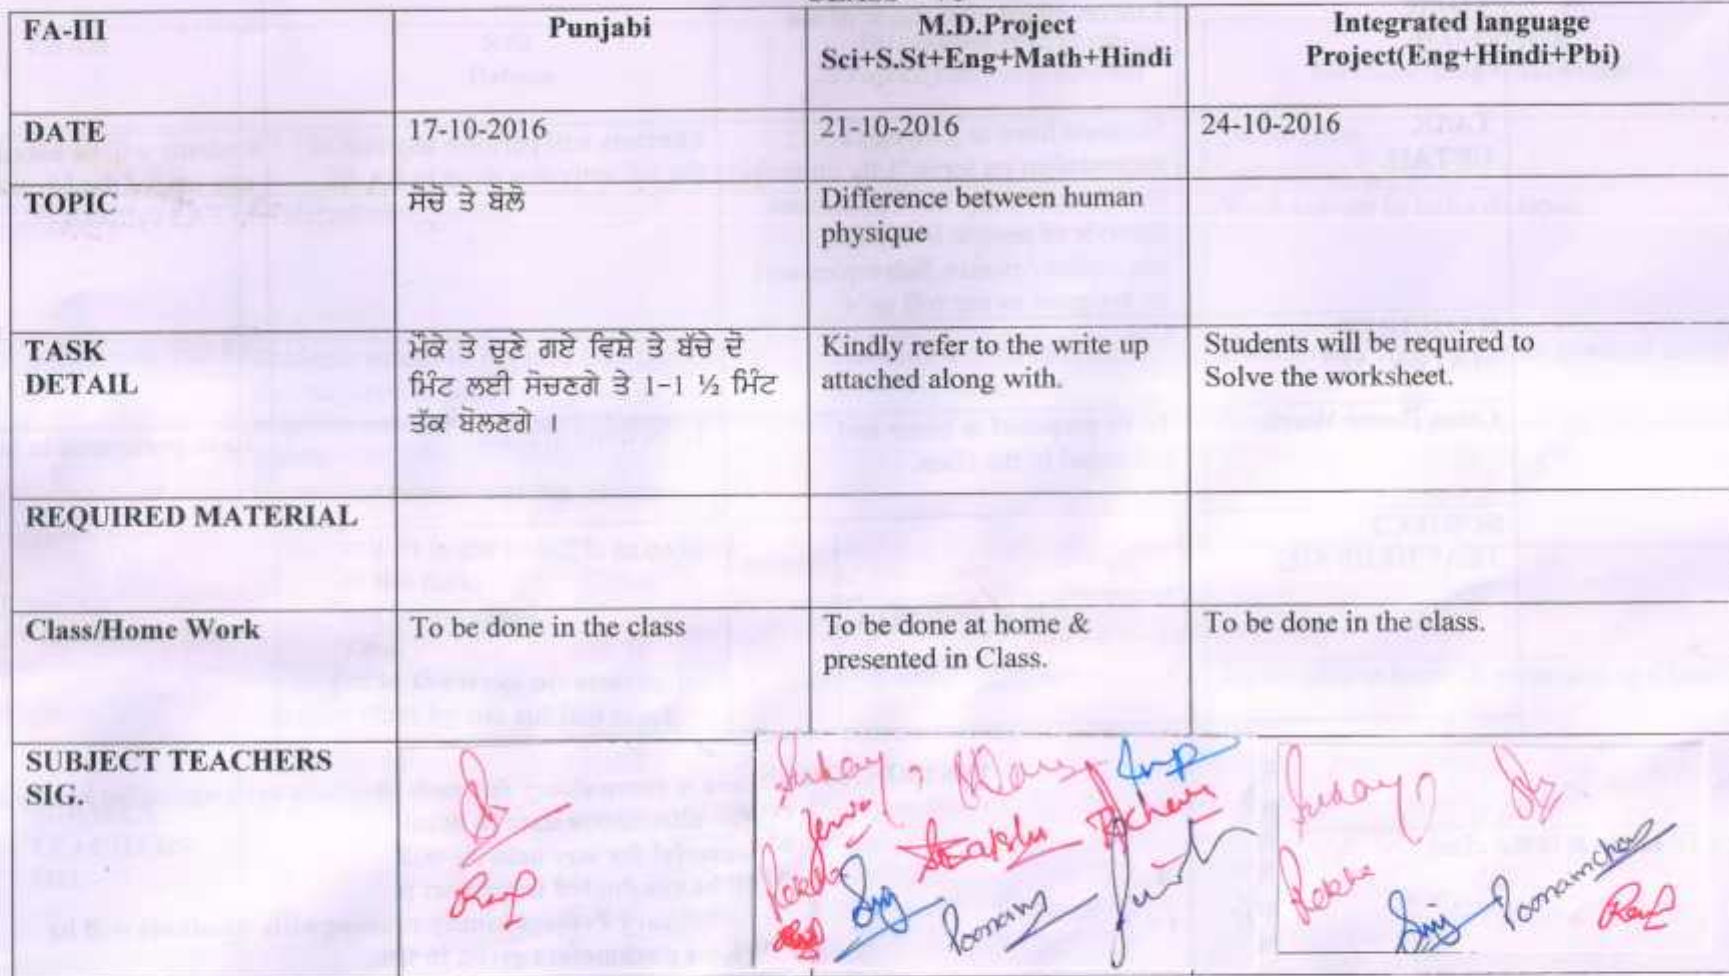 FA-III
Punjabi
M.D.Project
Sci+S.St+Eng+Math+Hindi
Integrated language
Project(Eng+Hindi+Pbi)
DATE
17-10-2016
21-10-2016
24-10-2016
TOPIC
ਸੋਚੋ ਤੇ ਬੋਲੋ
Difference between human
physique
TASK
DETAIL
ਮੌਕੇ ਤੇ ਚੁਣੇ ਗਏ ਵਿਸ਼ੇ ਤੇ ਬੱਚੇ ਦੋ
ਮਿੰਟ ਲਈ ਸੋਚਣਗੇ ਤੇ 1-1 ½ ਮਿੰਟ
ਤੱਕ ਬੋਲਣਗੇ ।
Kindly refer to the write up
attached along with.
Students will be required to
Solve the worksheet.
REQUIRED MATERIAL
Class/Home Work
To be done in the class
To be done at home &
presented in Class.
To be done in the class.
SUBJECT TEACHERS
SIG.